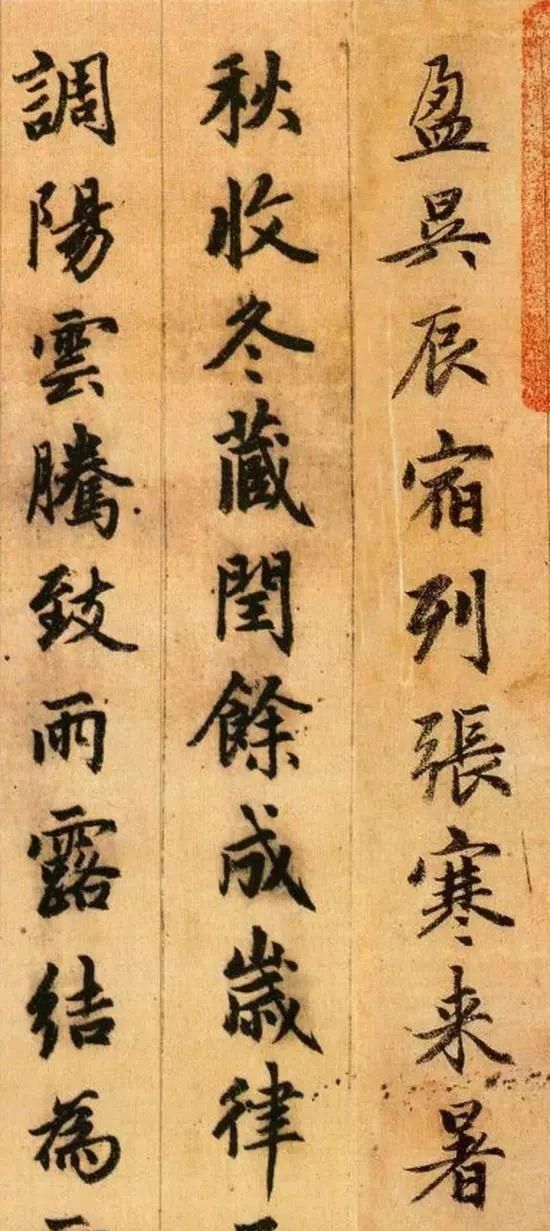 盈昃辰宿列張寒来暑
秋收冬藏閏餘成歲律
調陽雲騰致雨露結為